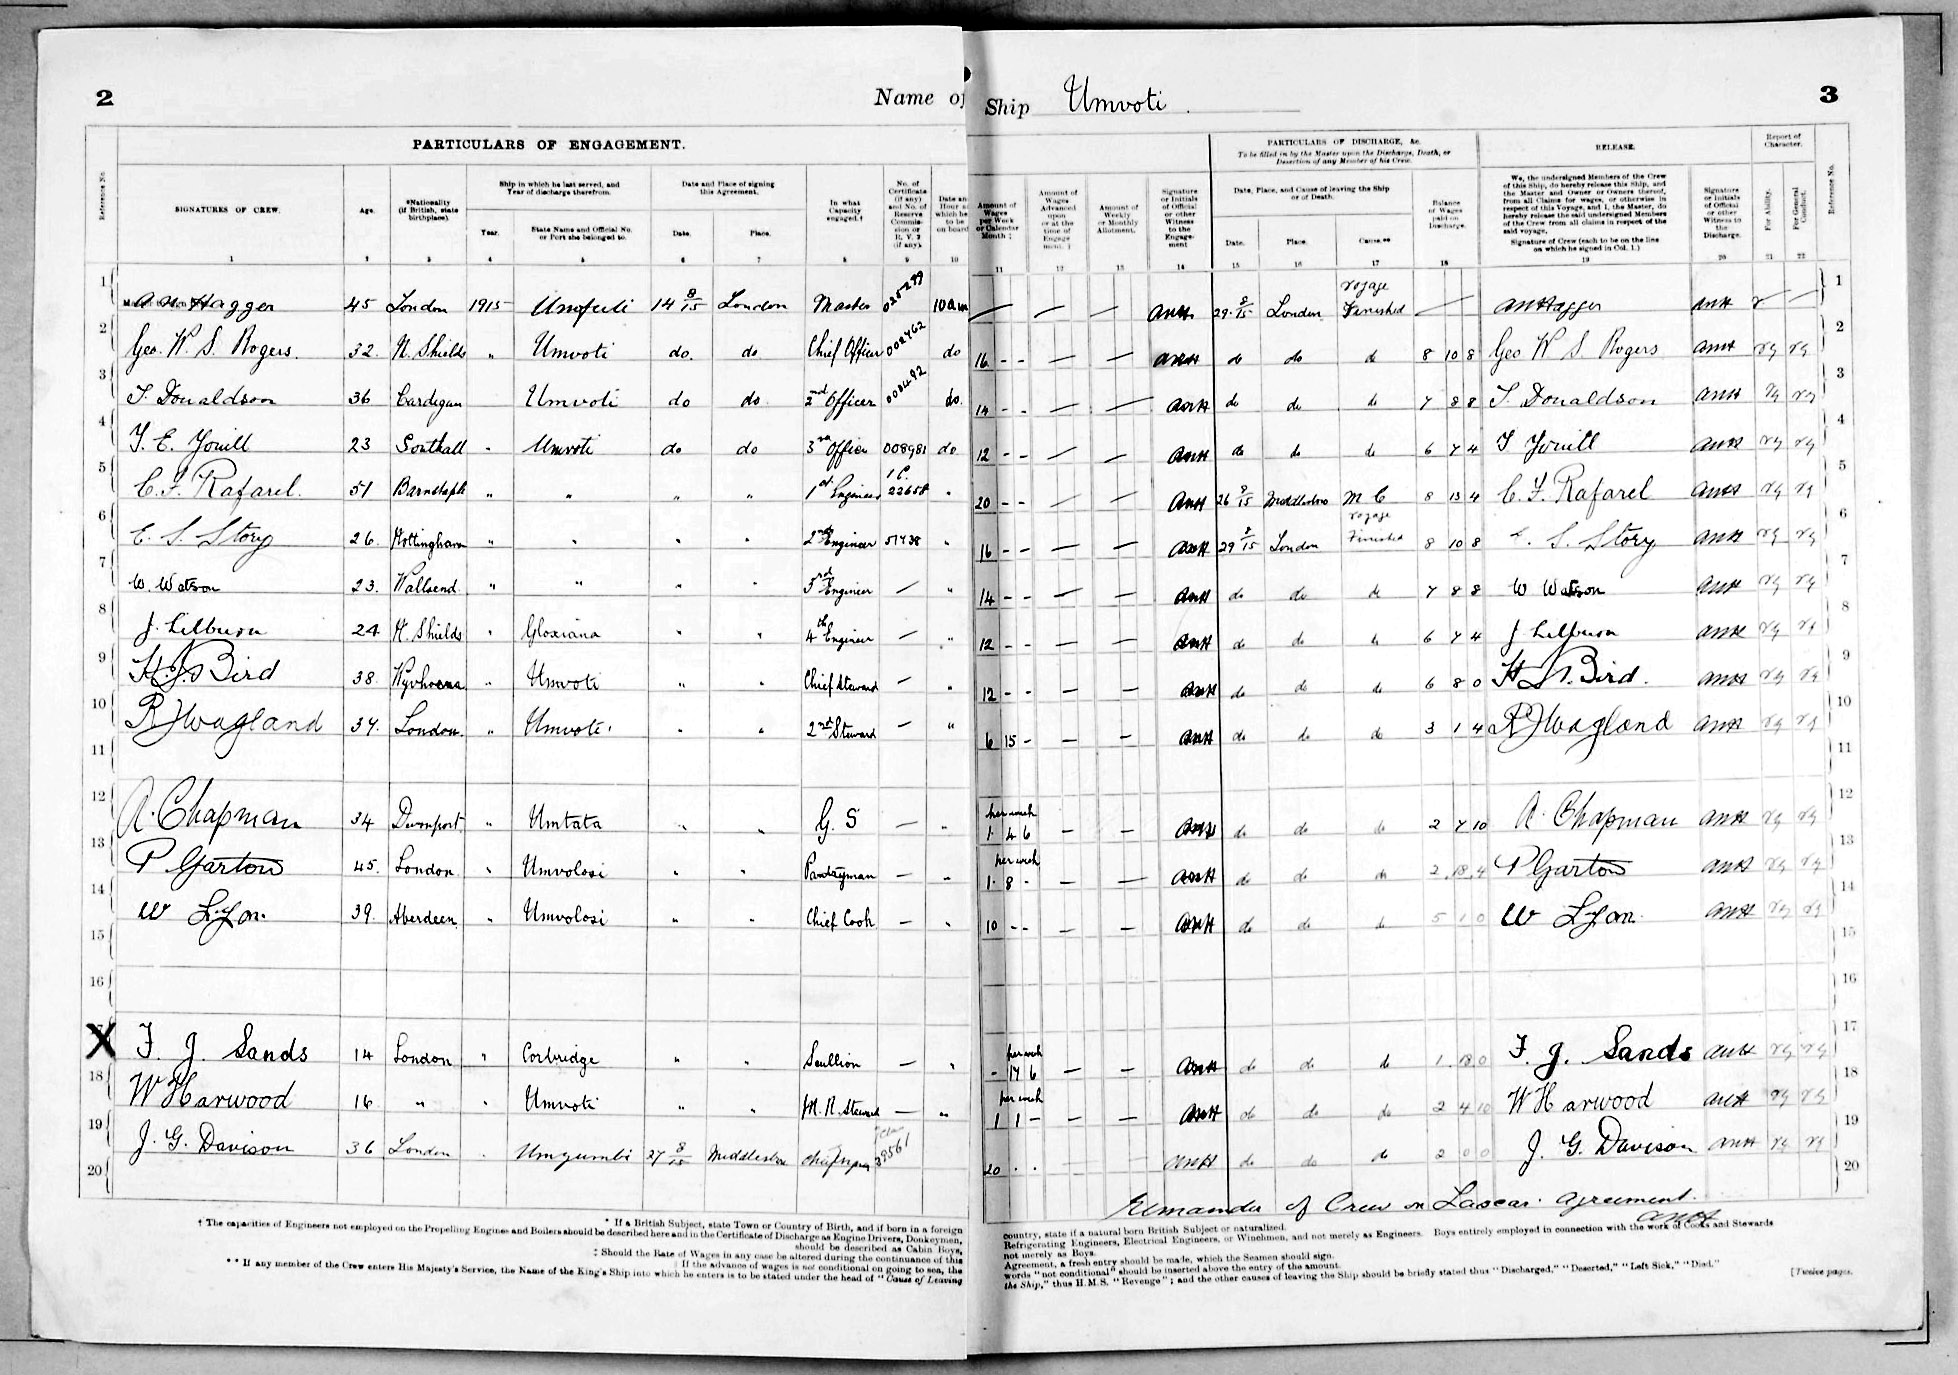 2
Name of Ship Umvoti.
3
PARTICULARS OF ENGAGEMENT.
PARTICULARS OF DISCHARGE, &c.
To be filled in by the Master upon the Discharge, Death, or
Desertion of any Member of his Crew.
RELEASE.
Report of
Character.
Reference No.
SIGNATURES OF CREW.
Age.
*Nationality
(if British, state
birthplace).
Ship in which he last served, and
Year of discharge therefrom.
Year.
State Name and Official No.
or Port she belonged to.
Date and Place of signing
this Agreement.
Date.
Place.
In what
Capacity
engaged.†
No. of
Certificate
(if any)
and No. of
Reserve
Commis-
sion or
R. V. 2
(if any).
Date and
Hour at
which he is
to be
on board
Amount of
Wages
per Week
or Calendar
Month ‡
Amount of
Wages
Advanced
upon
or at the
time of
Engage
ment.
Amount of
Weekly
or Monthly
Allotment.
Signature
or Initials
of Official
or other
Witness
to the
Engage-
ment
Date, Place, and Cause of leaving the Ship
or of Death.
Date.
Place.
Cause.**
Balance
of Wages
paid on
Discharge.
We, the undersigned Members of the Crew
of this Ship, do hereby release this Ship, and
the Master and Owner or Owners thereof,
from all Claims for wages, or otherwise in
respect of this Voyage, and I, the Master, do
hereby release the said undersigned Members
of the Crew from all claims in respect of the
said voyage.
Signature of Crew (each to be on the line
on which he signed in Col. 1.)
Signature
or Initials
of Official
or other
Witness to
the
Discharge.
For Ability.
For General
Conduct.
Reference No.
1 2 3 4 5 6 7 8 9 10 11 12 13 14 15 16 17 18 19 20 21 22
1 A N Hagger 45 London 1915 Umfuli 14 8/15 London Master 025299 10 am — — — ANH 29 9/15 London voyage Finished — ANHagger ANH 1
2 Geo. W. S. Rogers. 32. N. Shields " Umvoti do. do Chief Officer 002462 do 16 - - — — ANH do do do 8 10 8 Geo W S Rogers ANH VG VG 2
3 T. Donaldson 36 Cardigan Umvoti do do 2nd Officer do. 14 - - — — ANH do do do 7 8 8 T. Donaldson ANH VG VG 3
4 T. E. Youill 23 Southall " Umvoti do do 3rd Officer 008981 do 12 - - — — ANH do do do 6 7 4 T Youill ANH VG VG 4
5 C. F. Rafarel. 51 Barnstaple " " " " 1st Engineer 1 C. 22658 " 20 - - — — ANH 26 9/15 Middlesbro M C 8 13 4 C. F. Rafarel ANH VG VG 5
6 E. S. Story 26. Nottingham " " " " 2nd Engineer 51438 " 16 - - — — ANH 29 9/15 London voyage Finished 8 10 8 E. S. Story ANH VG VG 6
7 W. Watson 23. Wallsend " " " " 3rd Engineer — " 14 - - — — ANH do do do 7 8 8 W Watson ANH VG VG 7
8 J. Lilburn 24 N. Shields " Gloxiana " " 4th Engineer — " 12 - - — — ANH do do do 6 7 4 J. Lilburn ANH VG VG 8
9 H. J. Bird 38. " Umvoti " " Chief Steward — " 12 - - — — ANH do do do 6 8 0 H J. Bird. ANH VG VG 9
10 R J Wagland 37. London. " Umvoti " " 2nd Steward — " 6 15 - — — ANH do do do 3 1 4 R J Wagland ANH VG VG 10
11 11
12 A. Chapman 34 Devonport " Umtata " " G. S — " per week 1. 4 6 — — ANH do do do 2 7 10 A. Chapman ANH VG VG 12
13 P Garton 45. London " Umvolosi " " Pantryman — " per week 1. 8 - — — ANH do do do 2. 18. 4 P Garton ANH VG VG 13
14 W Lyon. 39. Aberdeen " Umvolosi " " Chief Cook — " 10 - - — — ANH do do do 5 1 0 W Lyon ANH VG VG 14
15 15
16 16
X F. J. Sands 14 London " Corbridge " " Scullion — " per week - 17 6 — — ANH do do do 1. 18 0 F. J. Sands ANH VG VG 17
18 W Harwood 16 " " Umvoti " " M. R. Steward — " per week 1 1 - — — ANH do do do 2 4 10 W Harwood ANH VG VG 18
19 J. G. Davison 36 London " Umgumbi 27 8/15 Middlesbro 39561 20 . . ANH do do do 2 0 0 J. G. Davison ANH VG VG 19
20 20
Remainder of Crew on Lascar Agreement.
ANH
* If a British Subject, state Town or Country of Birth, and if born in a foreign country, state if a natural born British Subject or naturalized.
† The capacities of Engineers not employed on the Propelling Engines and Boilers should be described here and in the Certificate of Discharge as Engine Drivers, Donkeymen, Refrigerating Engineers, Electrical Engineers, or Winchmen, and not merely as Engineers. Boys entirely employed in connection with the work of Cooks and Stewards
should be described as Cabin Boys, not merely as Boys.
‡ Should the Rate of Wages in any case be altered during the continuance of this Agreement, a fresh entry should be made, which the Seamen should sign.
If the advance of wages is not conditional on going to sea, the words "not conditional" should be inserted above the entry of the amount.
** If any member of the Crew enters His Majesty's Service, the Name of the King's Ship into which he enters is to be stated under the head of "Cause of Leaving the Ship," thus H.M.S. "Revenge"; and the other causes of leaving the Ship should be briefly stated thus "Discharged," "Deserted," "Left Sick," "Died."
[Twelve pages.